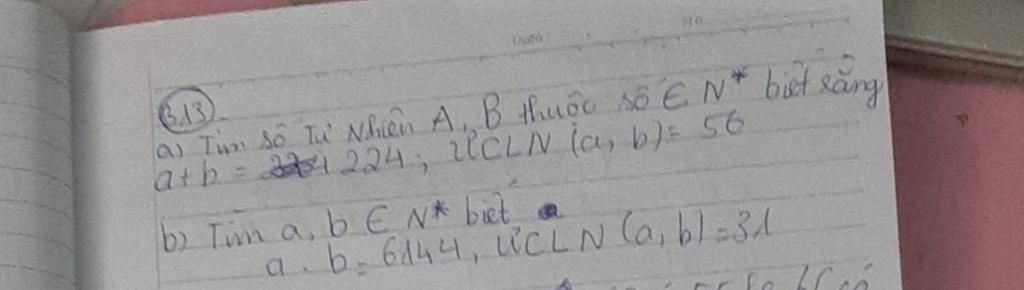 3.13
a) Tìm số Tự Nhiên A, B thuộc số ∈ N* biết rằng
a+b = 224, ƯCLN (a, b) = 56
b) Tìm a, b ∈ N* biết
a . b = 6144, ƯCLN (a, b) = 31